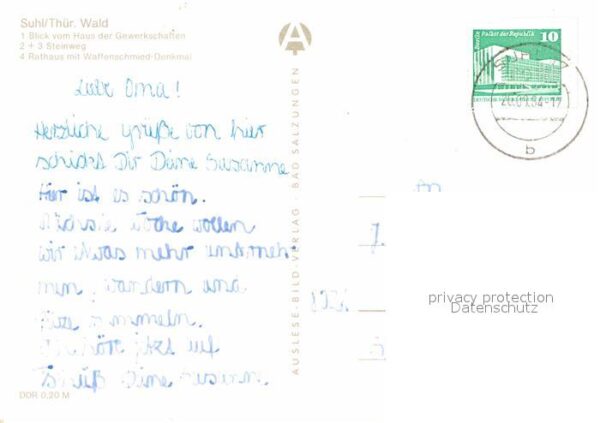 Suhl/Thür. Wald
1 Blick vom Haus der Gewerkschaften
2 + 3 Steinweg
4 Rathaus mit Waffenschmied-Denkmal
Liebe Oma!
Herzliche Grüße von hier
schickt Dir Deine Susanne
Hier ist es schön.
Woche wollen
wir etwas mehr unterneh-
men, wandern und
jetzt auf
Deine
DDR 0,20 M
AUSLESE-BILD-VERLAG · BAD SALZUNGEN
Palast der Republik
10
b
privacy protection
Datenschutz